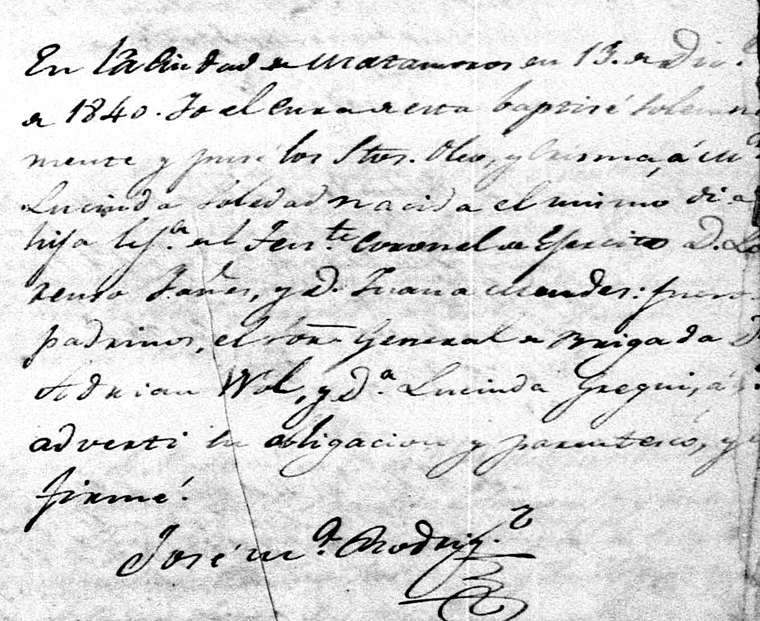 En la Ciudad de Matamoros en 13. de Dic.e
de 1840. Yo el Cura de esta baptisé solemn
mente y puse los Stos. Oleo, y Crisma, á M.a
Lucinda Soledad nacida el mismo dia
hija leg.a del Ten.te Coronel de Ejercito D. Lo
renso y d. Juana Mendes: fueron
padrinos, el Sor. General de Brigada D.
Adrian Wol, y d.a Lucinda Gregui, á
adverti su obligacion y parentesco, y
firmé.
José M.a Rodrig.z